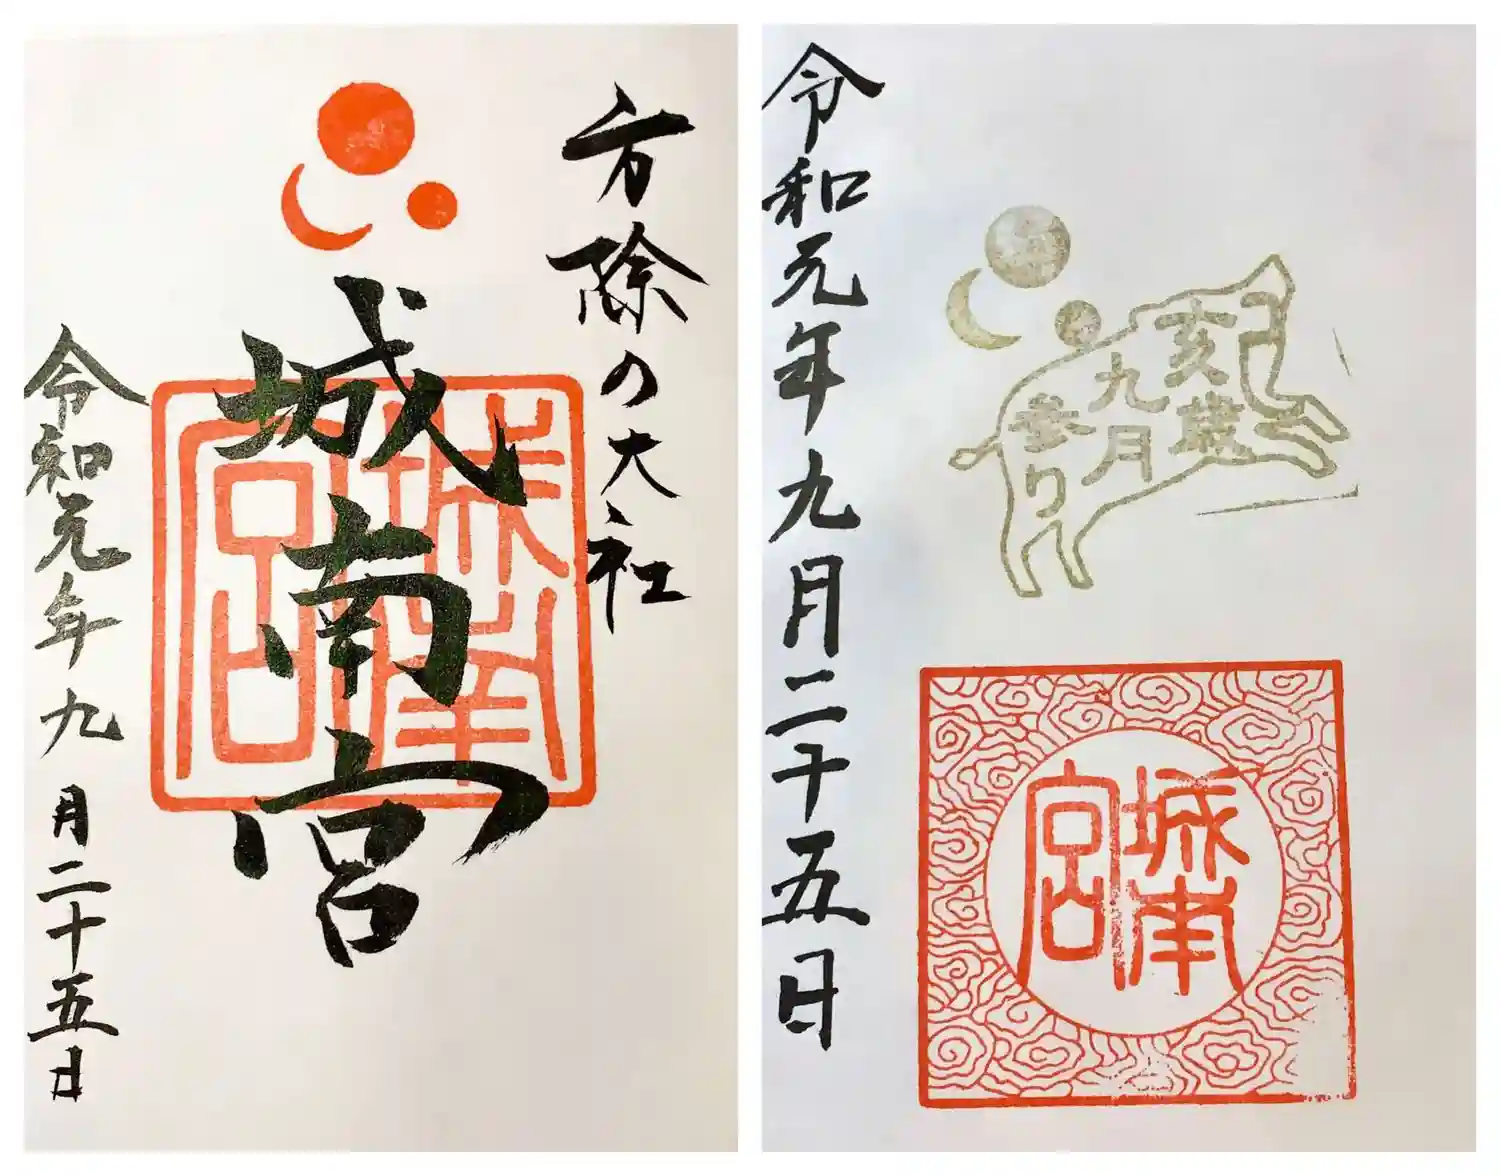 方除の大社
城南宮
城南宮
令和元年九月二十五日
亥歳
九月
参り
城南宮
令和元年九月二十五日